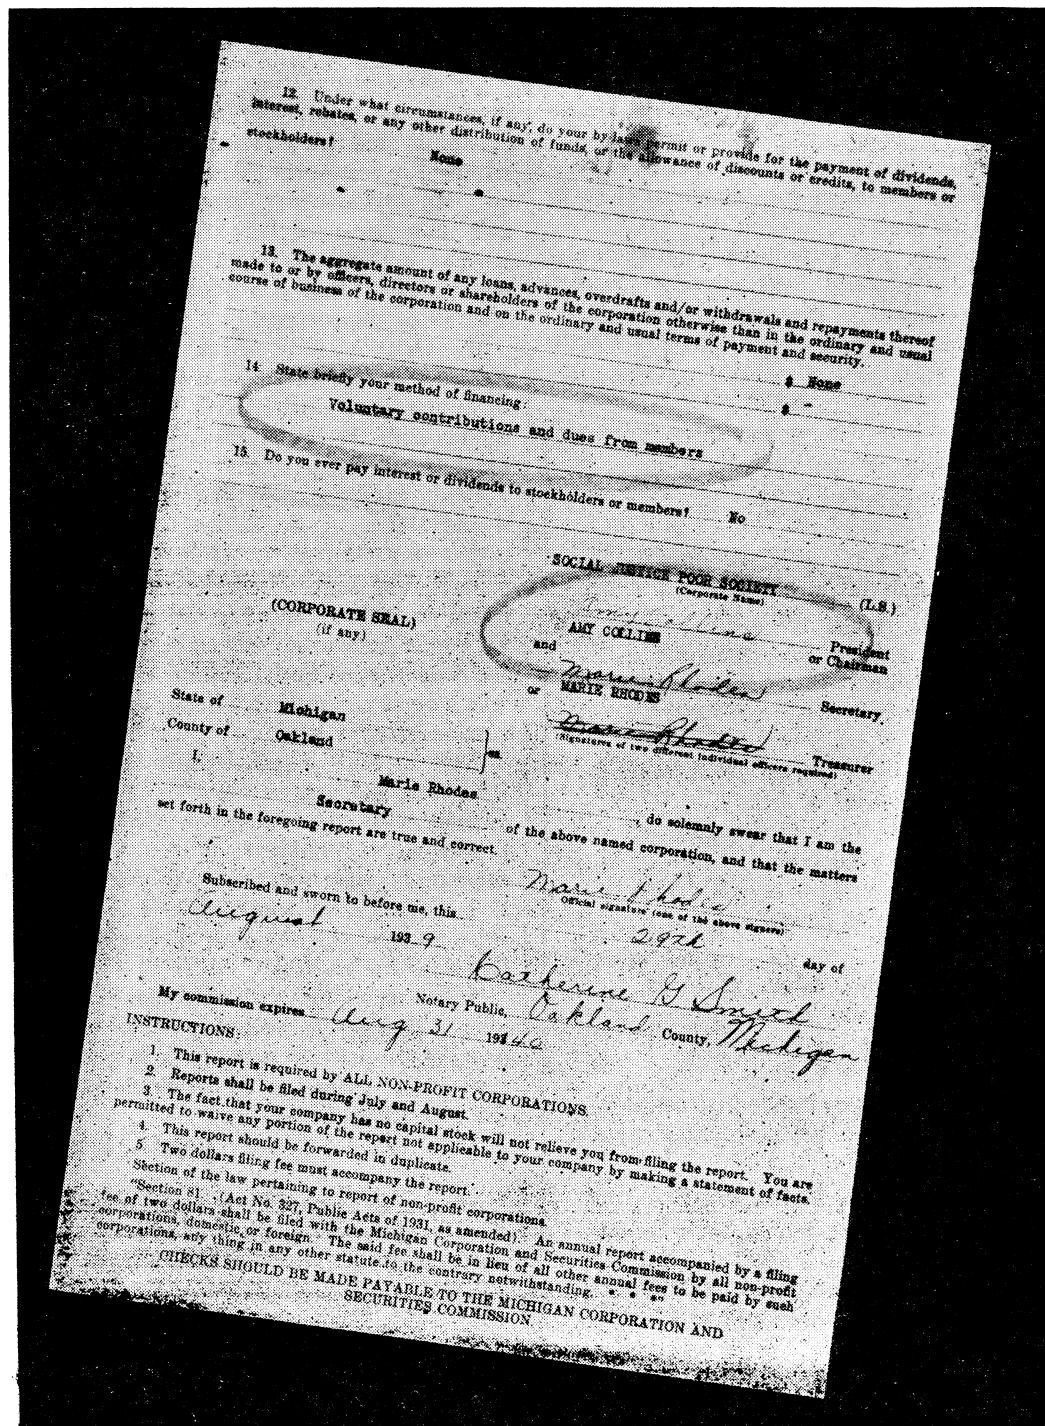 12. Under what circumstances, if any, do your by-laws permit or provide for the payment of dividends,
interest, rebates, or any other distribution of funds, or the allowance of discounts or credits, to members or
stockholders? None
13. The aggregate amount of any loans, advances, overdrafts and/or withdrawals and repayments thereof
made to or by officers, directors or shareholders of the corporation otherwise than in the ordinary and usual
course of business of the corporation and on the ordinary and usual terms of payment and security.
$ None
$ -
14. State briefly your method of financing:
Voluntary contributions and dues from members
15. Do you ever pay interest or dividends to stockholders or members? No
SOCIAL JUSTICE POOR SOCIETY (L.S.)
(Corporate Name)
(CORPORATE SEAL)
(if any)
Amy Collins
AMY COLLINS President
or Chairman
and
Marie Rhodes
or MARIE RHODES Secretary
Marie Rhodes Treasurer
(Signatures of two different individual officers required)
State of Michigan
County of Oakland } ss.
I, Marie Rhodes, do solemnly swear that I am the
Secretary of the above named corporation, and that the matters
set forth in the foregoing report are true and correct.
Marie Rhodes
Official signature (one of the above signers)
Subscribed and sworn to before me, this 29th day of
August 1939
Katherine G Smith
Notary Public, Oakland County, Michigan
My commission expires Aug 31 1940
INSTRUCTIONS:
1. This report is required by ALL NON-PROFIT CORPORATIONS.
2. Reports shall be filed during July and August.
3. The fact that your company has no capital stock will not relieve you from filing the report. You are
permitted to waive any portion of the report not applicable to your company by making a statement of facts.
4. This report should be forwarded in duplicate.
5. Two dollars filing fee must accompany the report.
Section of the law pertaining to report of non-profit corporations.
"Section 81. (Act No. 327, Public Acts of 1931, as amended). An annual report accompanied by a filing
fee of two dollars shall be filed with the Michigan Corporation and Securities Commission by all non-profit
corporations, domestic or foreign. The said fee shall be in lieu of all other annual fees to be paid by such
corporations, any thing in any other statute to the contrary notwithstanding. * * *"
CHECKS SHOULD BE MADE PAYABLE TO THE MICHIGAN CORPORATION AND
SECURITIES COMMISSION.